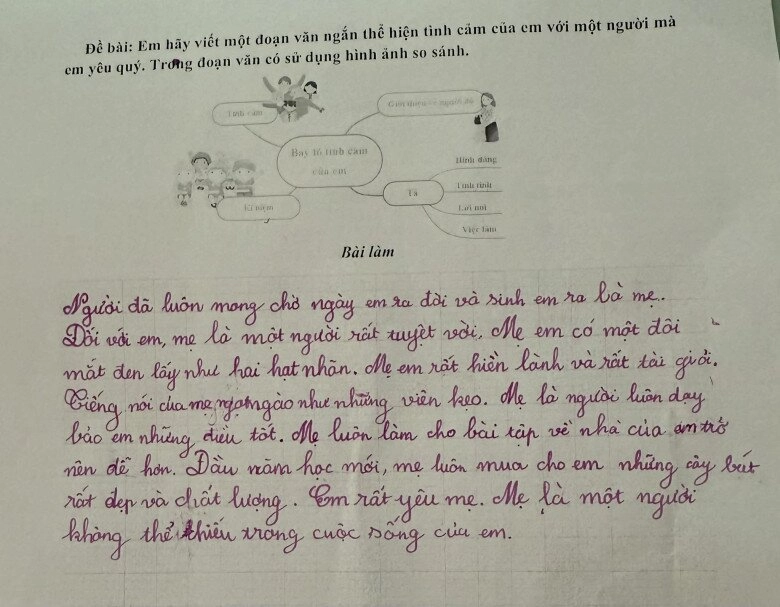 Đề bài: Em hãy viết một đoạn văn ngắn thể hiện tình cảm của em với một người mà
em yêu quý. Trong đoạn văn có sử dụng hình ảnh so sánh.
Tình cảm
Giới thiệu về người đó
Bày tỏ tình cảm
của em
Hình dáng
Tả
Tính tình
Kỉ niệm
Lời nói
Việc làm
Bài làm
Người đã luôn mong chờ ngày em ra đời và sinh em ra là mẹ.
Đối với em, mẹ là một người rất tuyệt vời. Mẹ em có một đôi
mắt đen láy như hai hạt nhãn. Mẹ em rất hiền lành và rất tài giỏi.
Tiếng nói của mẹ ngọt ngào như những viên kẹo. Mẹ là người luôn dạy
bảo em những điều tốt. Mẹ luôn làm cho bài tập về nhà của em trở
nên dễ hơn. Đầu năm học mới, mẹ luôn mua cho em những cây bút
rất đẹp và chất lượng. Em rất yêu mẹ. Mẹ là một người
không thể thiếu trong cuộc sống của em.